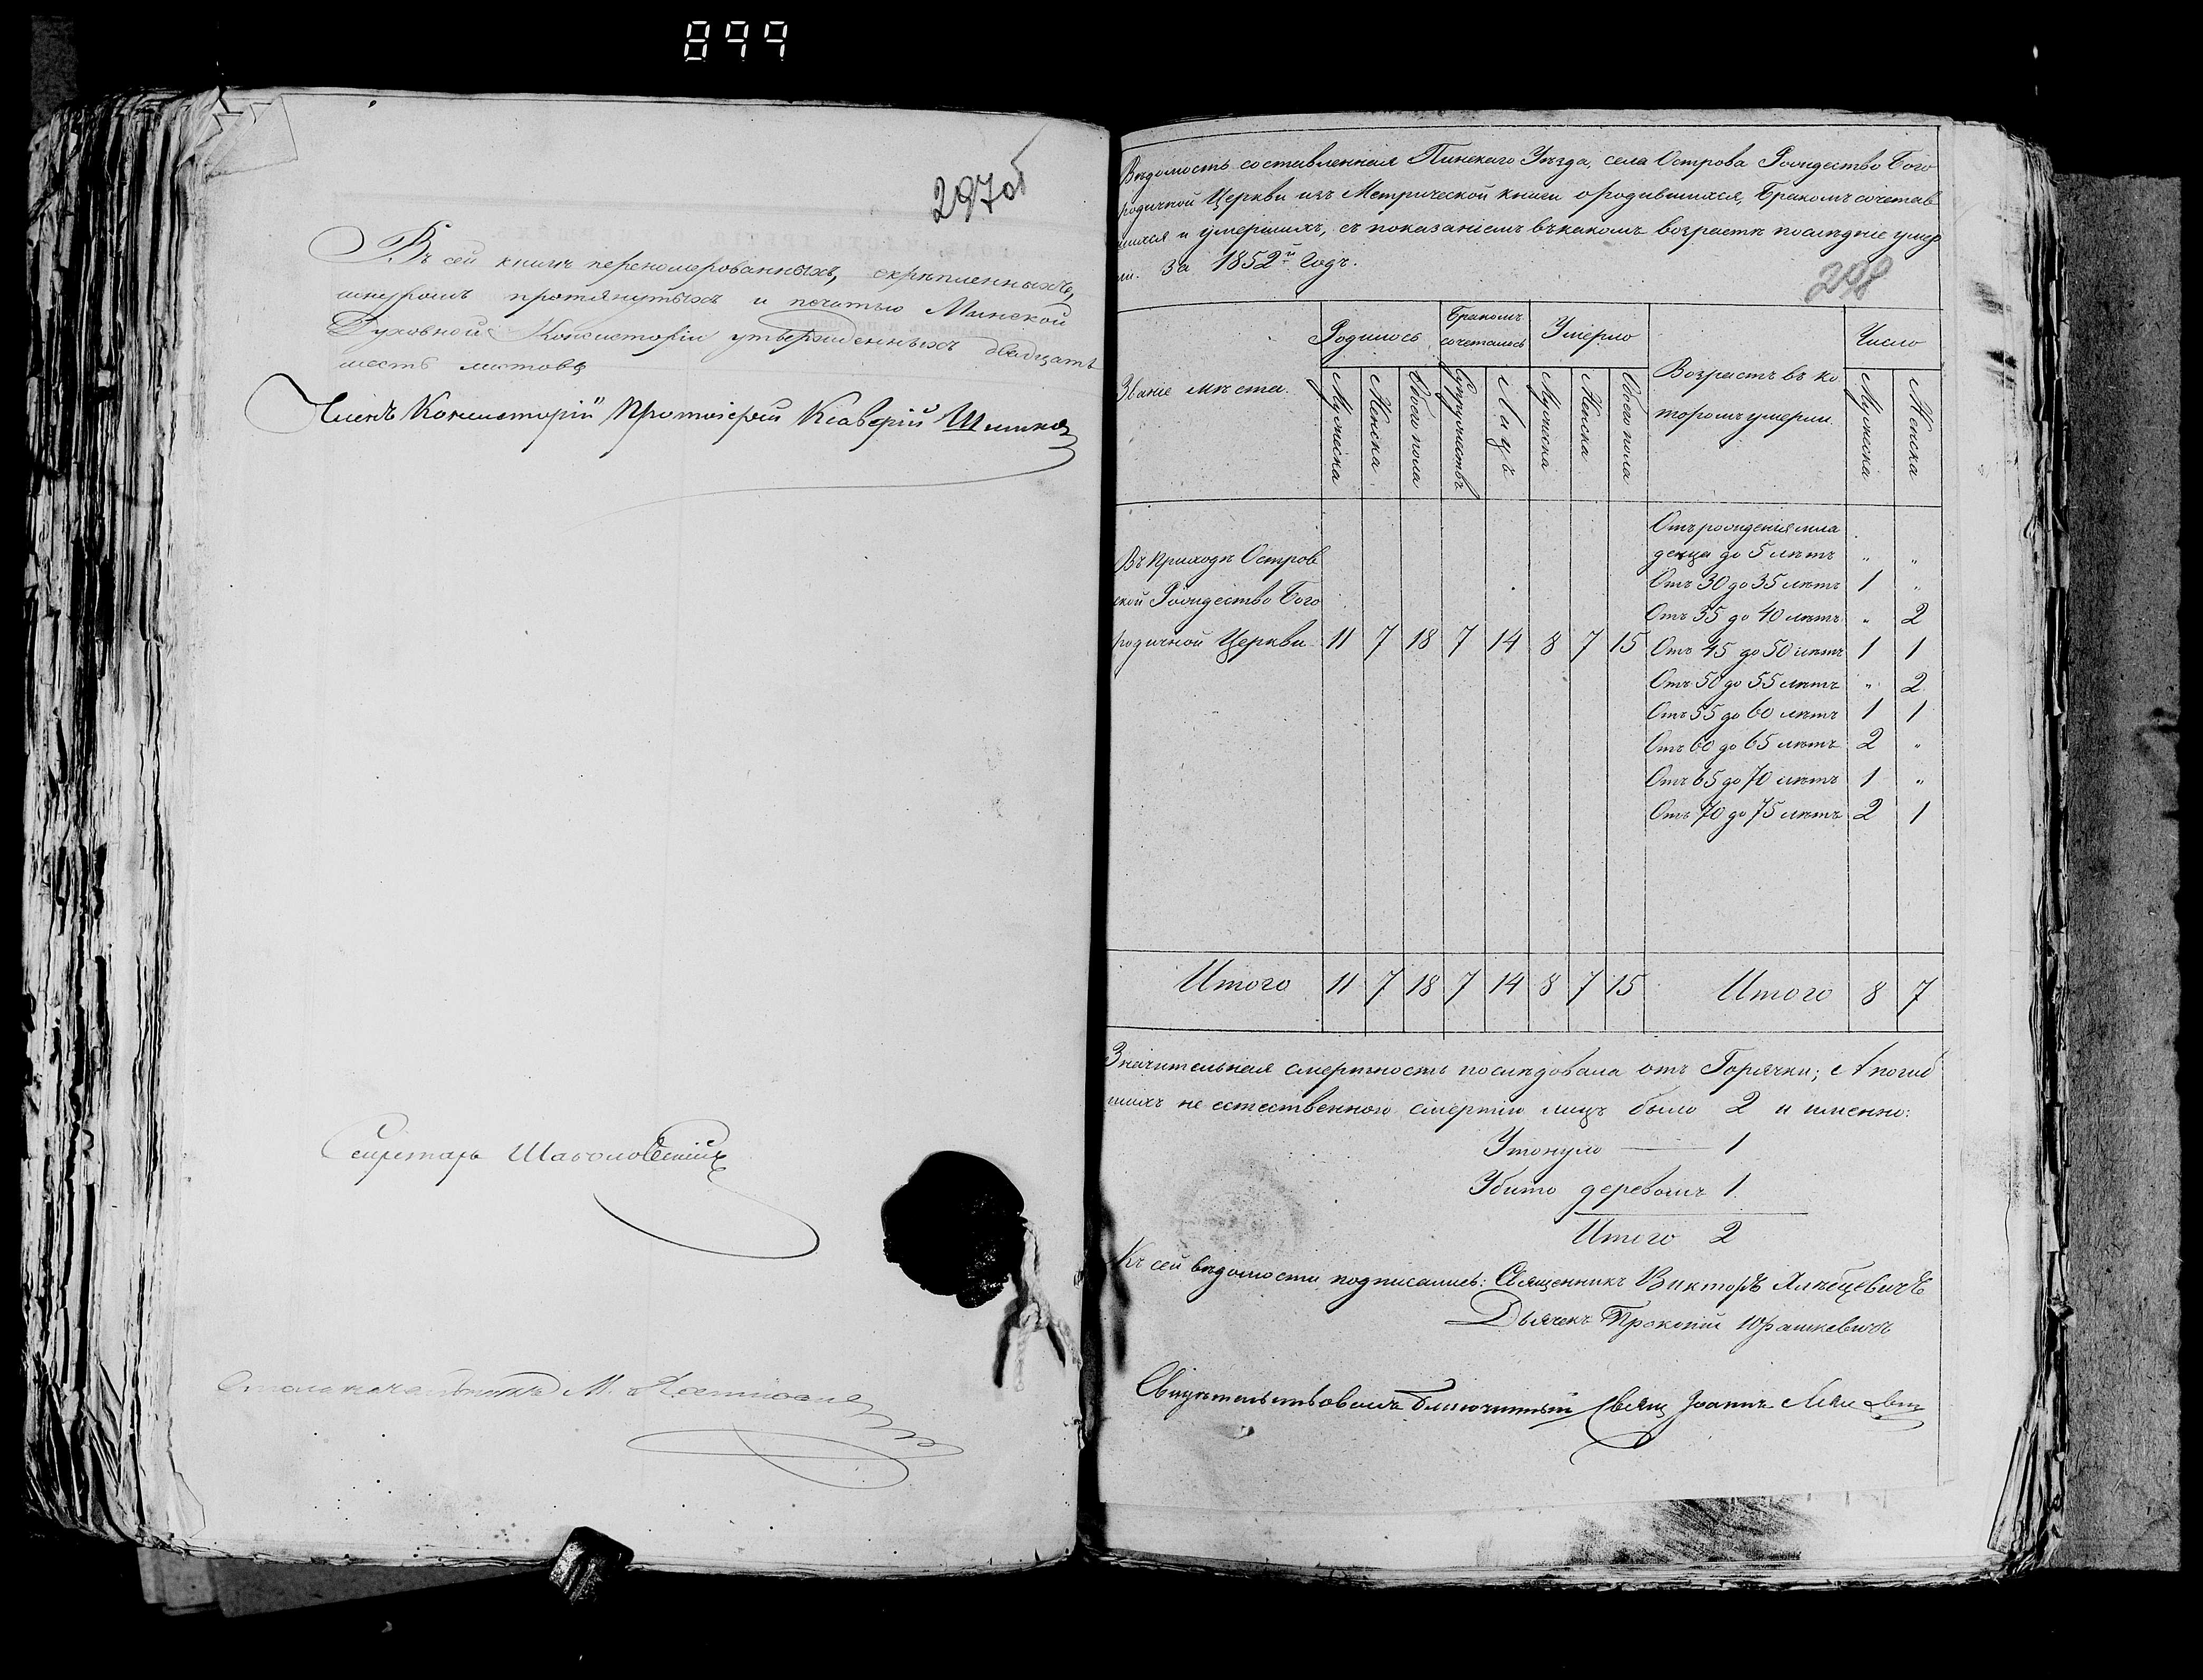 899
297об
Въ сей книгѣ переномерованныхъ, скрѣпленныхъ,
шнуромъ протянутыхъ и печатью Минской
Духовной Консисторіи утвержденныхъ двадцать
шесть листовъ
Членъ Консисторіи Протоіерей Ксаверій
Секретарь
Столоначальникъ М.
Вѣдомость составленная Пинскаго Уѣзда, села Острова Рождество Бого
родичной Церкви изъ Метрической книги о родившихся, Бракомъ сочетав
шихся и умершихъ, съ показаніемъ въ какомъ возрастѣ послѣдніе умер
ли. За 1852й Годъ.
298
Званіе мѣста.
Родилось
Бракомъ сочеталось
Умерло
Возрастъ въ ко
торомъ умерли.
Число
Мужеска
Женска
Обоего пола
Супружествъ
Лицъ
Мужеска
Женска
Обоего пола
Мужеска
Женска
Отъ рожденія мла
Въ Приходѣ Остров
денца до 5 лѣтъ " "
Отъ 30 до 35 лѣтъ 1 "
ской Рождество Бого
Отъ 35 до 40 лѣтъ " 2
родичной Церкви 11 7 18 7 14 8 7 15 Отъ 45 до 50 лѣтъ 1 1
Отъ 50 до 55 лѣтъ " 2
Отъ 55 до 60 лѣтъ 1 1
Отъ 60 до 65 лѣтъ 2 "
Отъ 65 до 70 лѣтъ 1 "
Отъ 70 до 75 лѣтъ 2 1
Итого 11 7 18 7 14 8 7 15 Итого 8 7
Значительная смертность послѣдовала отъ Горячки; а погиб
шихъ не естественною смертію лицъ было 2 и именно:
Утонуло — 1
Убито деревомъ 1.
Итого 2
Къ сей вѣдомости подписались: Священникъ Викторъ Ялѣбцевичъ
Дьячекъ Прокопій Юрашкевичъ
Свидѣтельствовалъ Благочинный Свящ Іоаннъ